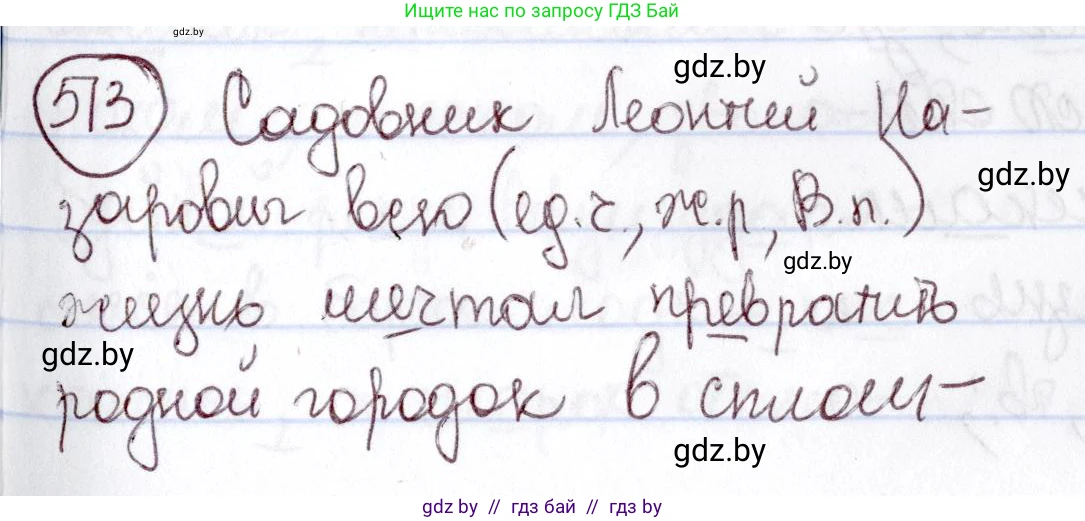 Ищите нас по запросу ГДЗ Бай
gdz.by
573 Садовник Леонтий На-
gdz.by
gdz.by
зарович всю (ед.ч., ж.р., В.п.)
gdz.by
жизнь мечтал превратить
gdz.by
родной городок в сплош-
gdz.by
gdz.by // гдз бай // гдз by